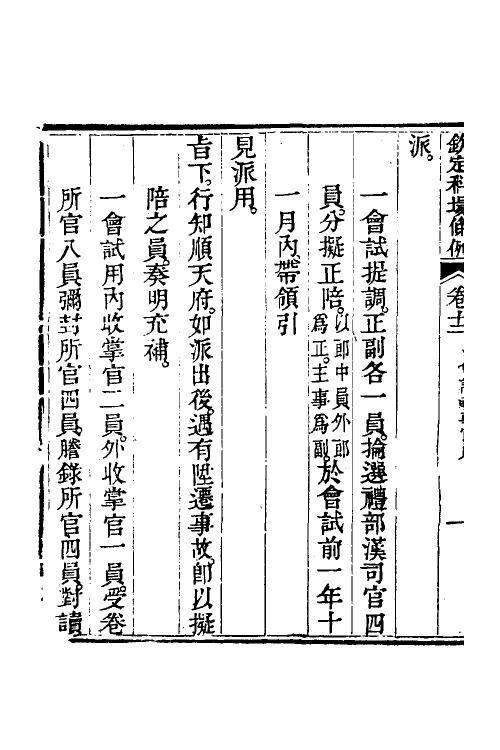 欽定科場條例 卷十二 一
派。
一會試提調。正副各一員。掄選禮部漢司官四
員。分擬正陪。以郎中員外郎為正。主事為副。於會試前一年十
一月內。帶領引
見派用。
旨下。行知順天府。如派出後。遇有陞遷事故。卽以擬
陪之員。奏明充補。
一會試用內收掌官二員。外收掌官一員。受卷
所官八員。彌封所官四員。謄錄所官四員。對讀